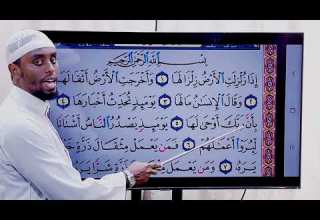 بِسْمِ اللَّهِ الرَّحْمَٰنِ الرَّحِيمِ
إِذَا زُلْزِلَتِ الْأَرْضُ زِلْزَالَهَا ۝١ وَأَخْرَجَتِ الْأَرْضُ أَثْقَالَهَا
۝٢ وَقَالَ الْإِنسَانُ مَا لَهَا ۝٣ يَوْمَئِذٍ تُحَدِّثُ أَخْبَارَهَا ۝٤
بِأَنَّ رَبَّكَ أَوْحَىٰ لَهَا ۝٥ يَوْمَئِذٍ يَصْدُرُ النَّاسُ أَشْتَاتًا
لِّيُرَوْا أَعْمَالَهُمْ ۝٦ فَمَن يَعْمَلْ مِثْقَالَ ذَرَّةٍ خَيْرًا
يَرَهُ ۝٧ وَمَن يَعْمَلْ مِثْقَالَ ذَرَّةٍ شَرًّا يَرَهُ